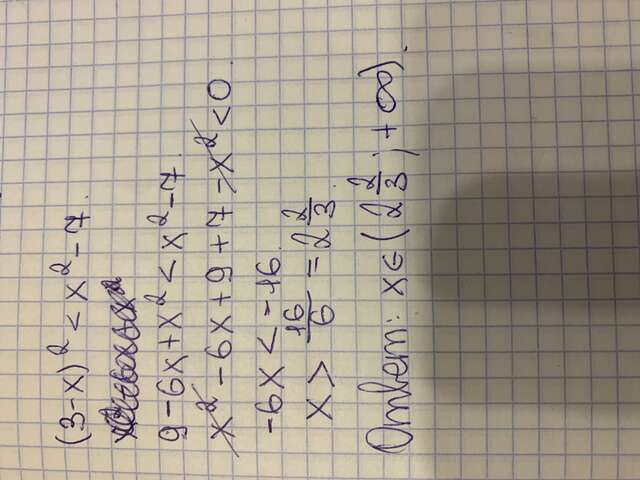 (3-x)² < x²-7.
9-6x+x² < x²-7.
x²-6x+9+7-x²<0.
-6x<-16.
x > 16/6 = 2 2/3.
Ответ: x∈(2 2/3; +∞).